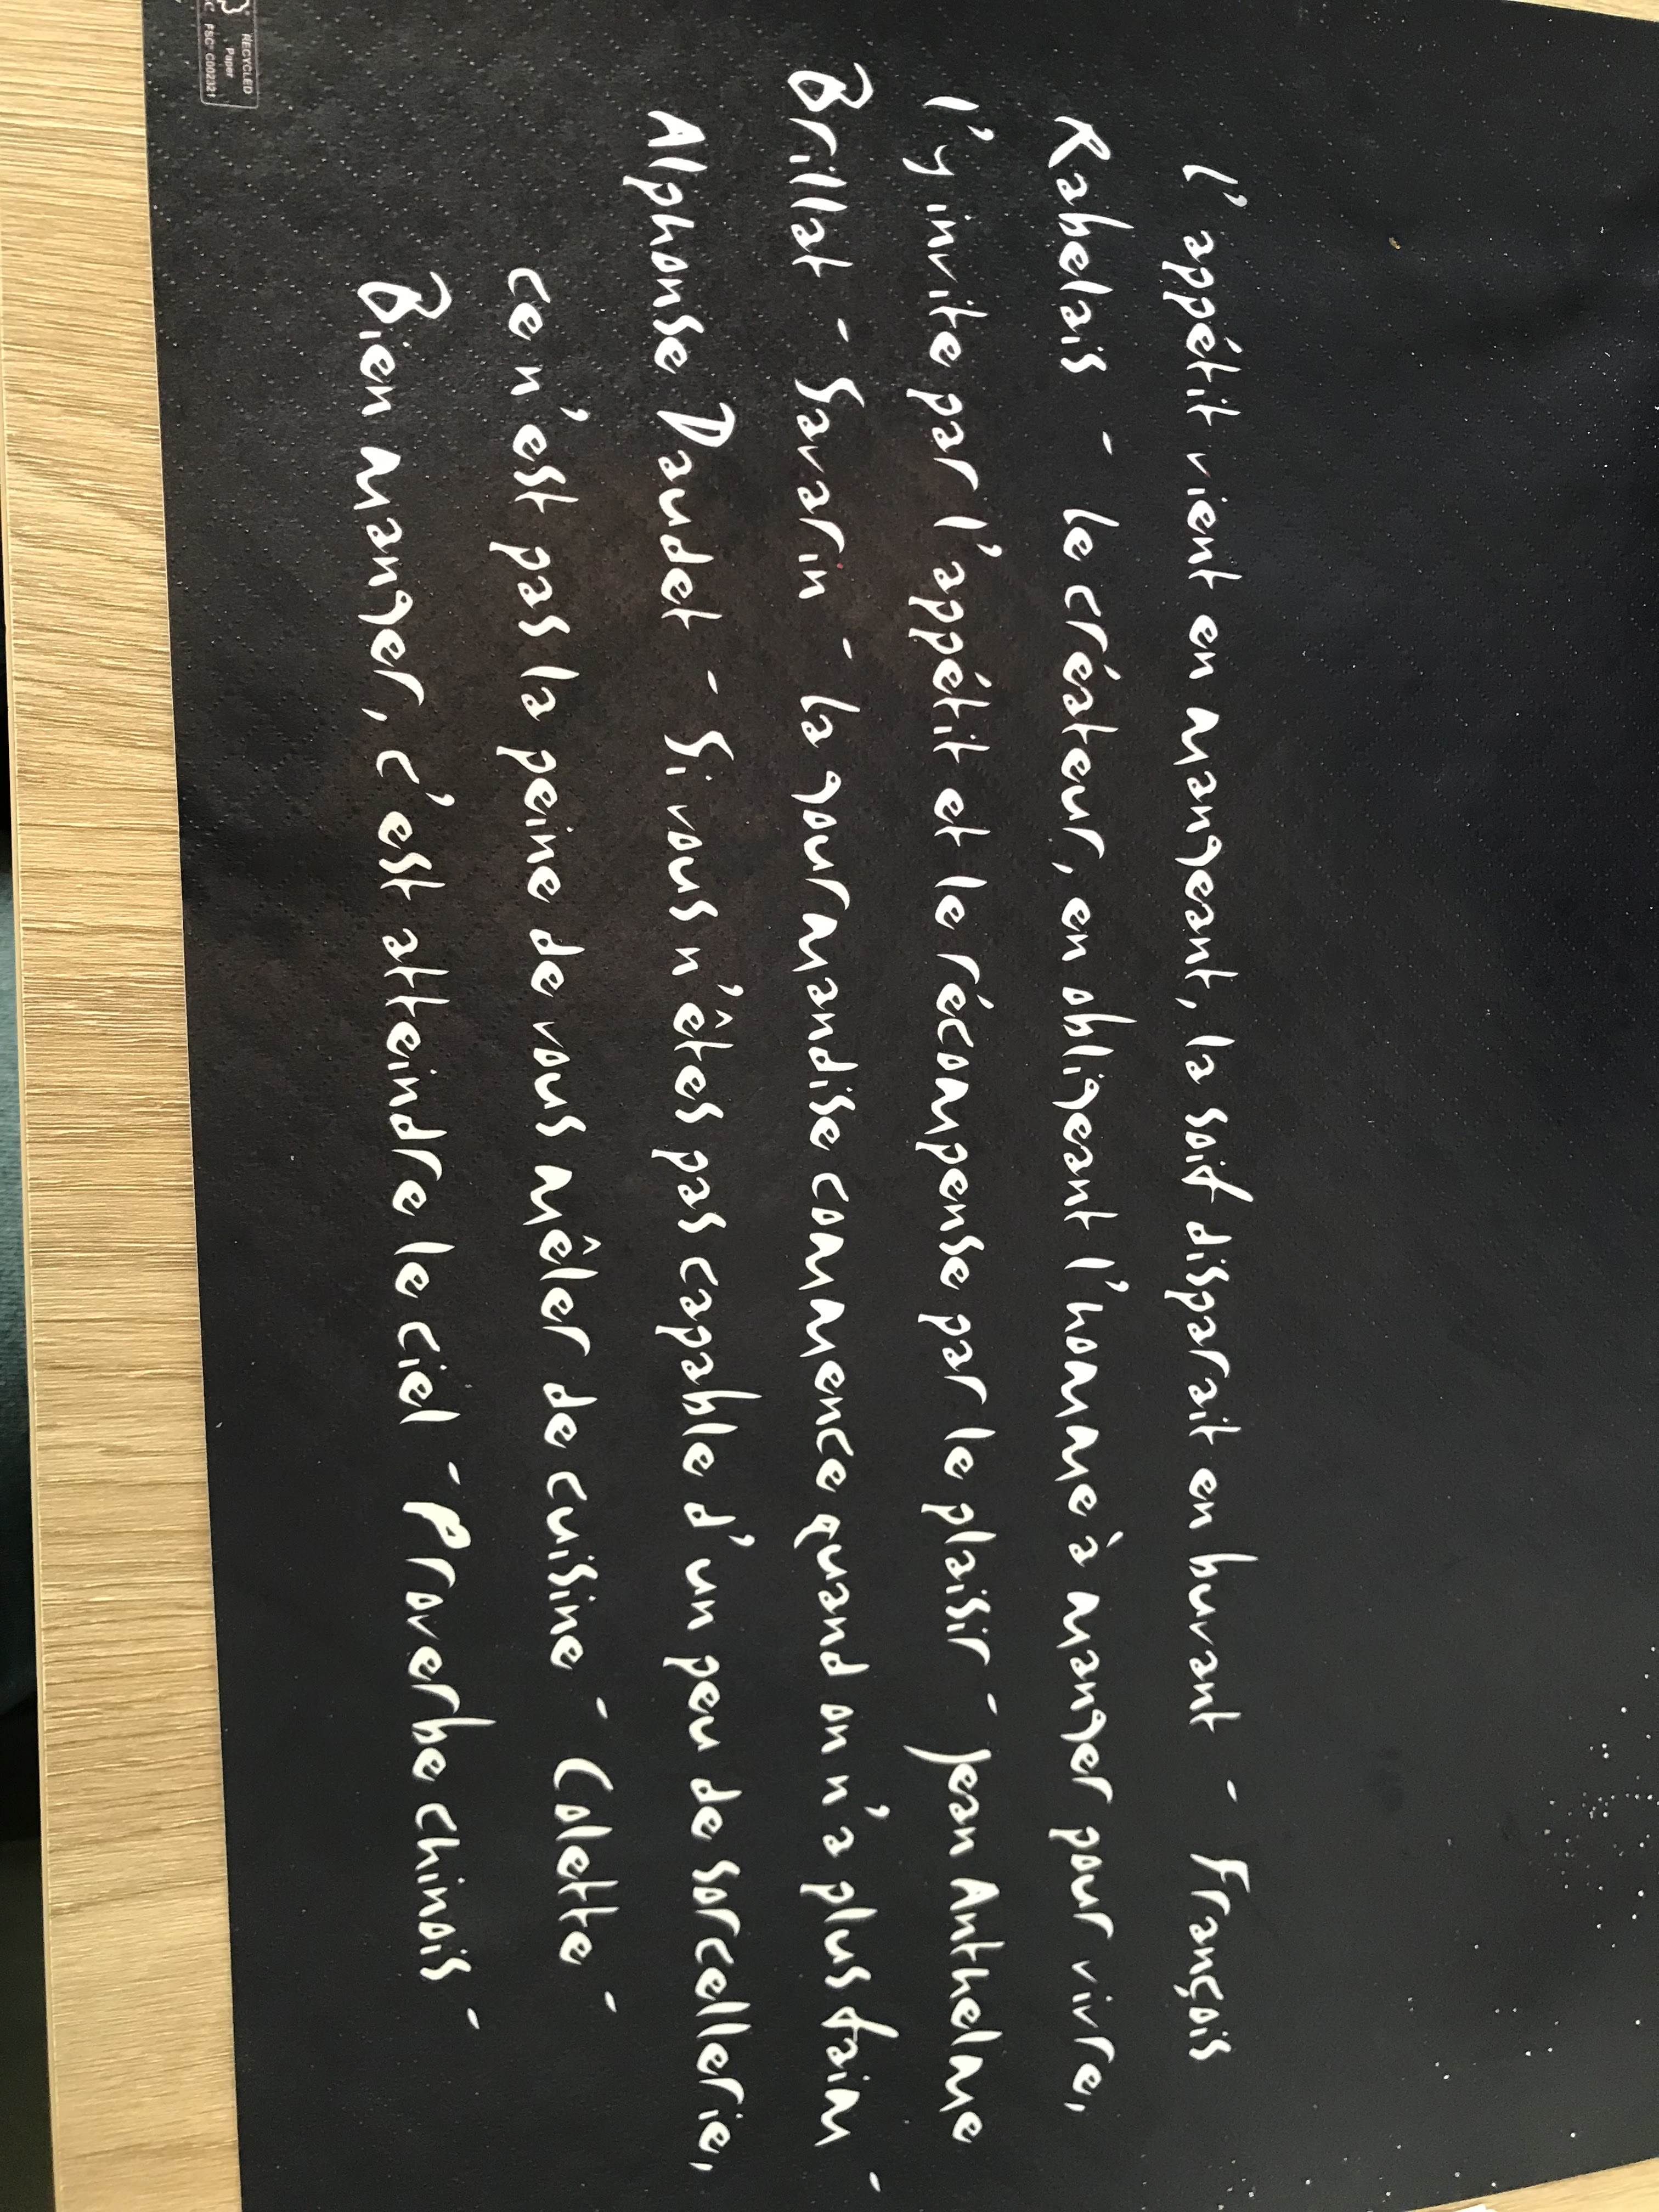 l'appétit vient en mangeant, la soif disparait en buvant - François
Rabelais - le créateur, en obligeant l'homme à manger pour vivre,
l'y invite par l'appétit et le récompense par le plaisir - Jean Anthelme
Brillat - Savarin - la gourmandise commence quand on n'a plus faim -
Alphonse Daudet - Si vous n'êtes pas capable d'un peu de sorcellerie,
ce n'est pas la peine de vous mêler de cuisine - Colette -
Bien manger, c'est atteindre le ciel - Proverbe chinois -
RECYCLED
Paper
FSC® C002321